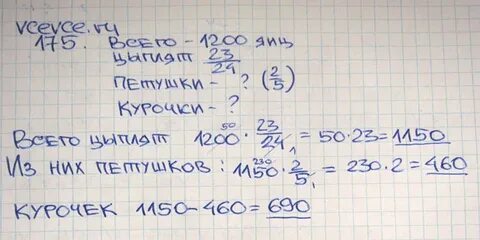 vcevce.ru
175. Всего - 1200 яиц
цыплят 23/24
петушки - ? (2/5)
курочки - ?
Всего цыплят 1200 50 · 23/24 1 = 50·23=1150
Из них петушков: 1150 230 · 2/5 1 = 230·2=460
Курочек 1150-460=690